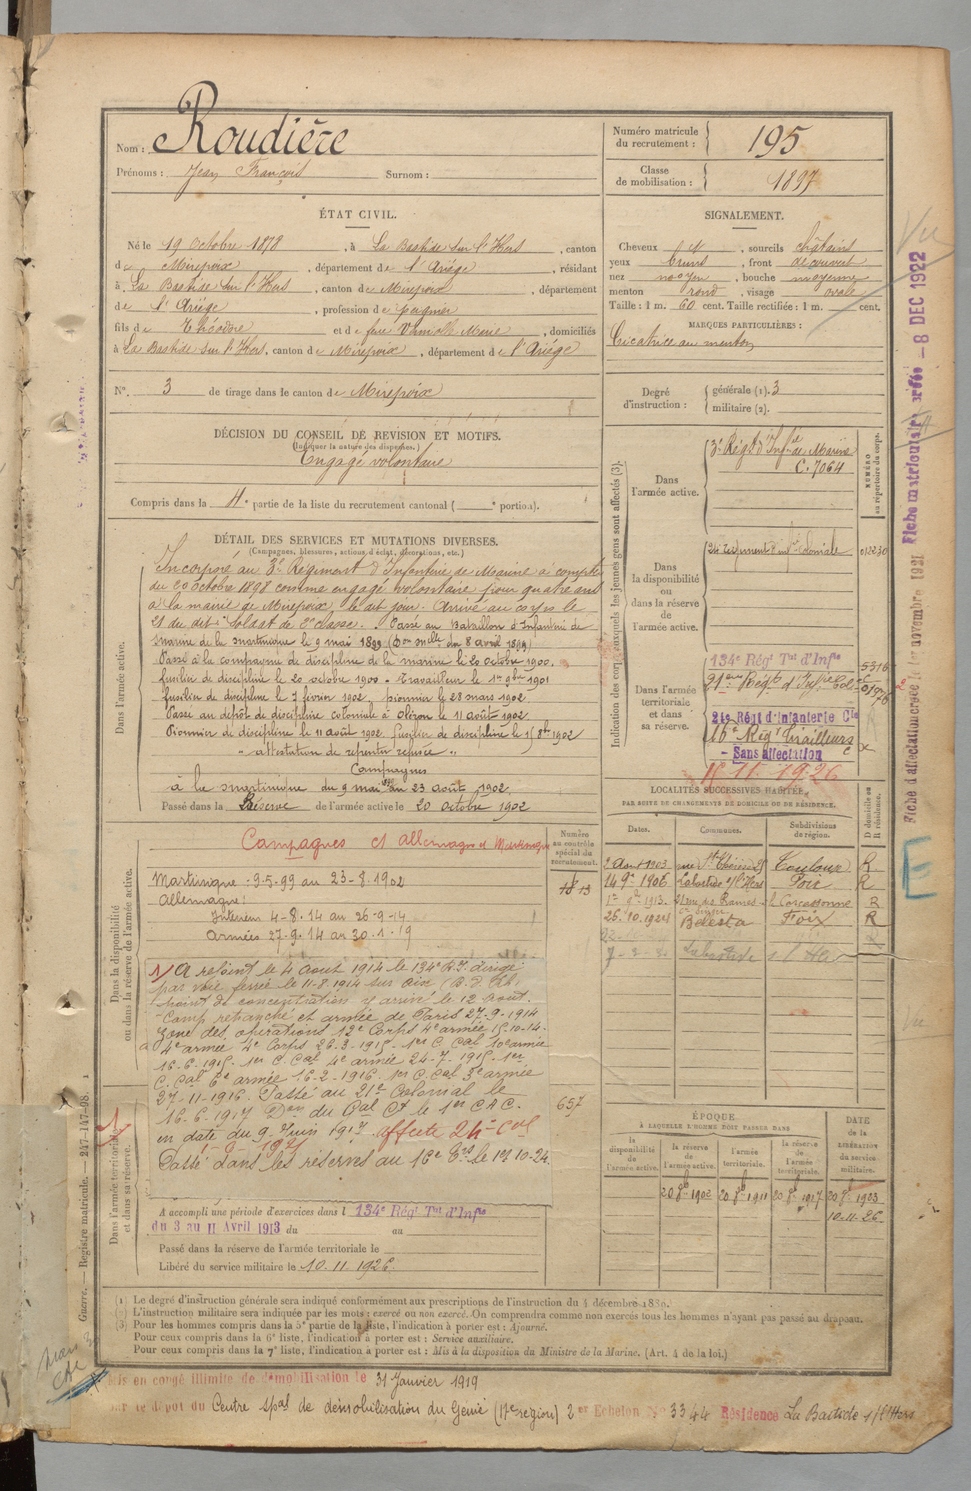 Nom : Roudière
Prénoms : Jean François Surnom :
Numéro matricule du recrutement : 195
Classe de mobilisation : 1897
ÉTAT CIVIL.
Né le 19 Octobre 1878, à La Bastide sur l'Hers, canton
de Mirepoix, département de l'Ariège, résidant
à La Bastide sur l'Hers, canton de Mirepoix, département
de l'Ariège, profession de peignier
fils de Théodore et de feue Marie, domiciliés
à La Bastide sur l'Hers, canton de Mirepoix, département de l'Ariège
N°. 3 de tirage dans le canton de Mirepoix
SIGNALEMENT.
Cheveux et, sourcils châtains
yeux bruns, front découvert
nez moyen, bouche moyenne
menton rond, visage ovale
Taille : 1 m. 60 cent. Taille rectifiée : 1 m. cent.
MARQUES PARTICULIÈRES :
Cicatrice au menton
Degré d'instruction : générale (1). 3
militaire (2).
DÉCISION DU CONSEIL DE REVISION ET MOTIFS.
(Indiquer la nature des dispenses.)
Engagé volontaire
Compris dans la 4e partie de la liste du recrutement cantonal ( e portion).
DÉTAIL DES SERVICES ET MUTATIONS DIVERSES.
(Campagnes, blessures, actions d'éclat, décorations, etc.)
Dans l'armée active.
Incorporé au 3e Régiment d'Infanterie de Marine à compter
du 20 octobre 1898 comme engagé volontaire pour quatre ans
à la mairie de Mirepoix, le dit jour. Arrivé au corps le
21 du dit. Soldat de 2e classe. Passé au Bataillon d'Infanterie de
marine de la martinique le 9 mai 1899 (Don mlle du 8 avril 1899)
Passé à la compagnie de discipline de la marine le 20 octobre 1900.
fusilier de discipline le 20 octobre 1900. Travailleur le 1er 9bre 1901
fusilier de discipline le 7 février 1902, pionnier le 28 mars 1902.
Passé au dépôt de discipline coloniale à Oléron le 11 août 1902.
Pionnier de discipline le 11 août 1902. fusilier de discipline le 1er 8bre 1902
" attestation de repentir refusée "
Campagnes
à la martinique du 9 mai 1899 au 23 août 1902.
Passé dans la Réserve de l'armée active le 20 octobre 1902
Indication des corps auxquels les jeunes gens sont affectés (3).
NUMÉRO au répertoire du corps.
Dans l'armée active.
3e Régt d'Infie de Marine
C. 7064
Dans la disponibilité ou dans la réserve de l'armée active.
24 régiment d'infie coloniale 013230
Dans l'armée territoriale et dans sa réserve.
134e Régt Tal d'Infie 5316
21ème Régt d'Infie Cole
21e Régt d'Infanterie Cle
16e Régt Tirailleurs
- Sans affectation
10.11.1926
LOCALITÉS SUCCESSIVES HABITÉES
PAR SUITE DE CHANGEMENTS DE DOMICILE OU DE RÉSIDENCE.
Dates. Communes. Subdivisions de région. D domicile ou R résidence.
2 Août 1903 Toulouse R
14 9bre 1906 Labastide s/l'Hers Foix R
Carcassonne R
26.10.1924 Bélesta Foix R
Labastide s/l'Hers
Dans la disponibilité ou dans la réserve de l'armée active.
Numéro au contrôle spécial du recrutement.
Campagnes ct allemagne et Martinique
Martinique : 9-5-99 au 23-8-1902
Allemagne :
Intérieur 4-8-14 au 26-9-14
Armées 27-9-14 au 30-1-19
1/ A rejoint le 4 août 1914 le 134e R.T. dirigé
par voie ferrée le 11-8-1914 sur Aix
Point de concentration y arrivé le 12 août.
Camp retranché et armée de Paris 27-9-1914
Zone des opérations 12e Corps 4e armée 15-10-14.
4e armée 4e Corps 26-3-1915 - 1er C. Cal 10e armée
16-6-1915. 1er C. Cal 4e armée 24-7-1915. 1er
C. Cal 6e armée 16-2-1916. 1er C. Cal 3e armée
27-11-1916. Passé au 21e Colonial le
16-6-1917 Don du Gal Ct le 1er C.A.C.
en date du 9 Juin 1917. affecté 24e Cal
Passé dans les réserves au 16e le 1er 10-24
657
Dans l'armée territoriale et dans sa réserve.
A accompli une période d'exercices dans l 134e Régt Tal d'Infie
du 3 au 11 Avril 1913 du au
Passé dans la réserve de l'armée territoriale le
Libéré du service militaire le 10.11.1926.
ÉPOQUE
À LAQUELLE L'HOMME DOIT PASSER DANS
la disponibilité de l'armée active. la réserve de l'armée active. l'armée territoriale. la réserve de l'armée territoriale. DATE de la LIBÉRATION du service militaire.
20 8b 1902 20 8b 1911 20 8b 1917 20 8b 1923
10-11-26
(1) Le degré d'instruction générale sera indiqué conformément aux prescriptions de l'instruction du 4 décembre 1889.
(2) L'instruction militaire sera indiquée par les mots : exercé ou non exercé. On comprendra comme non exercés tous les hommes n'ayant pas passé au drapeau.
(3) Pour les hommes compris dans la 5e partie de la liste, l'indication à porter est : Ajourné.
Pour ceux compris dans la 6e liste, l'indication à porter est : Service auxiliaire.
Pour ceux compris dans la 7e liste, l'indication à porter est : Mis à la disposition du Ministre de la Marine. (Art. 4 de la loi.)
Mis en congé illimité de démobilisation le 31 Janvier 1919
par le dépôt du Centre spal de démobilisation du Génie (17e region) 2e Echelon N° 3344 Résidence La Bastide s/l'Hers
Guerre. — Registre matricule. — 247-147-98.
Fiche matriculaire créée - 8 DEC 1922
Fiche d'affectation créée le 1er novembre 1921